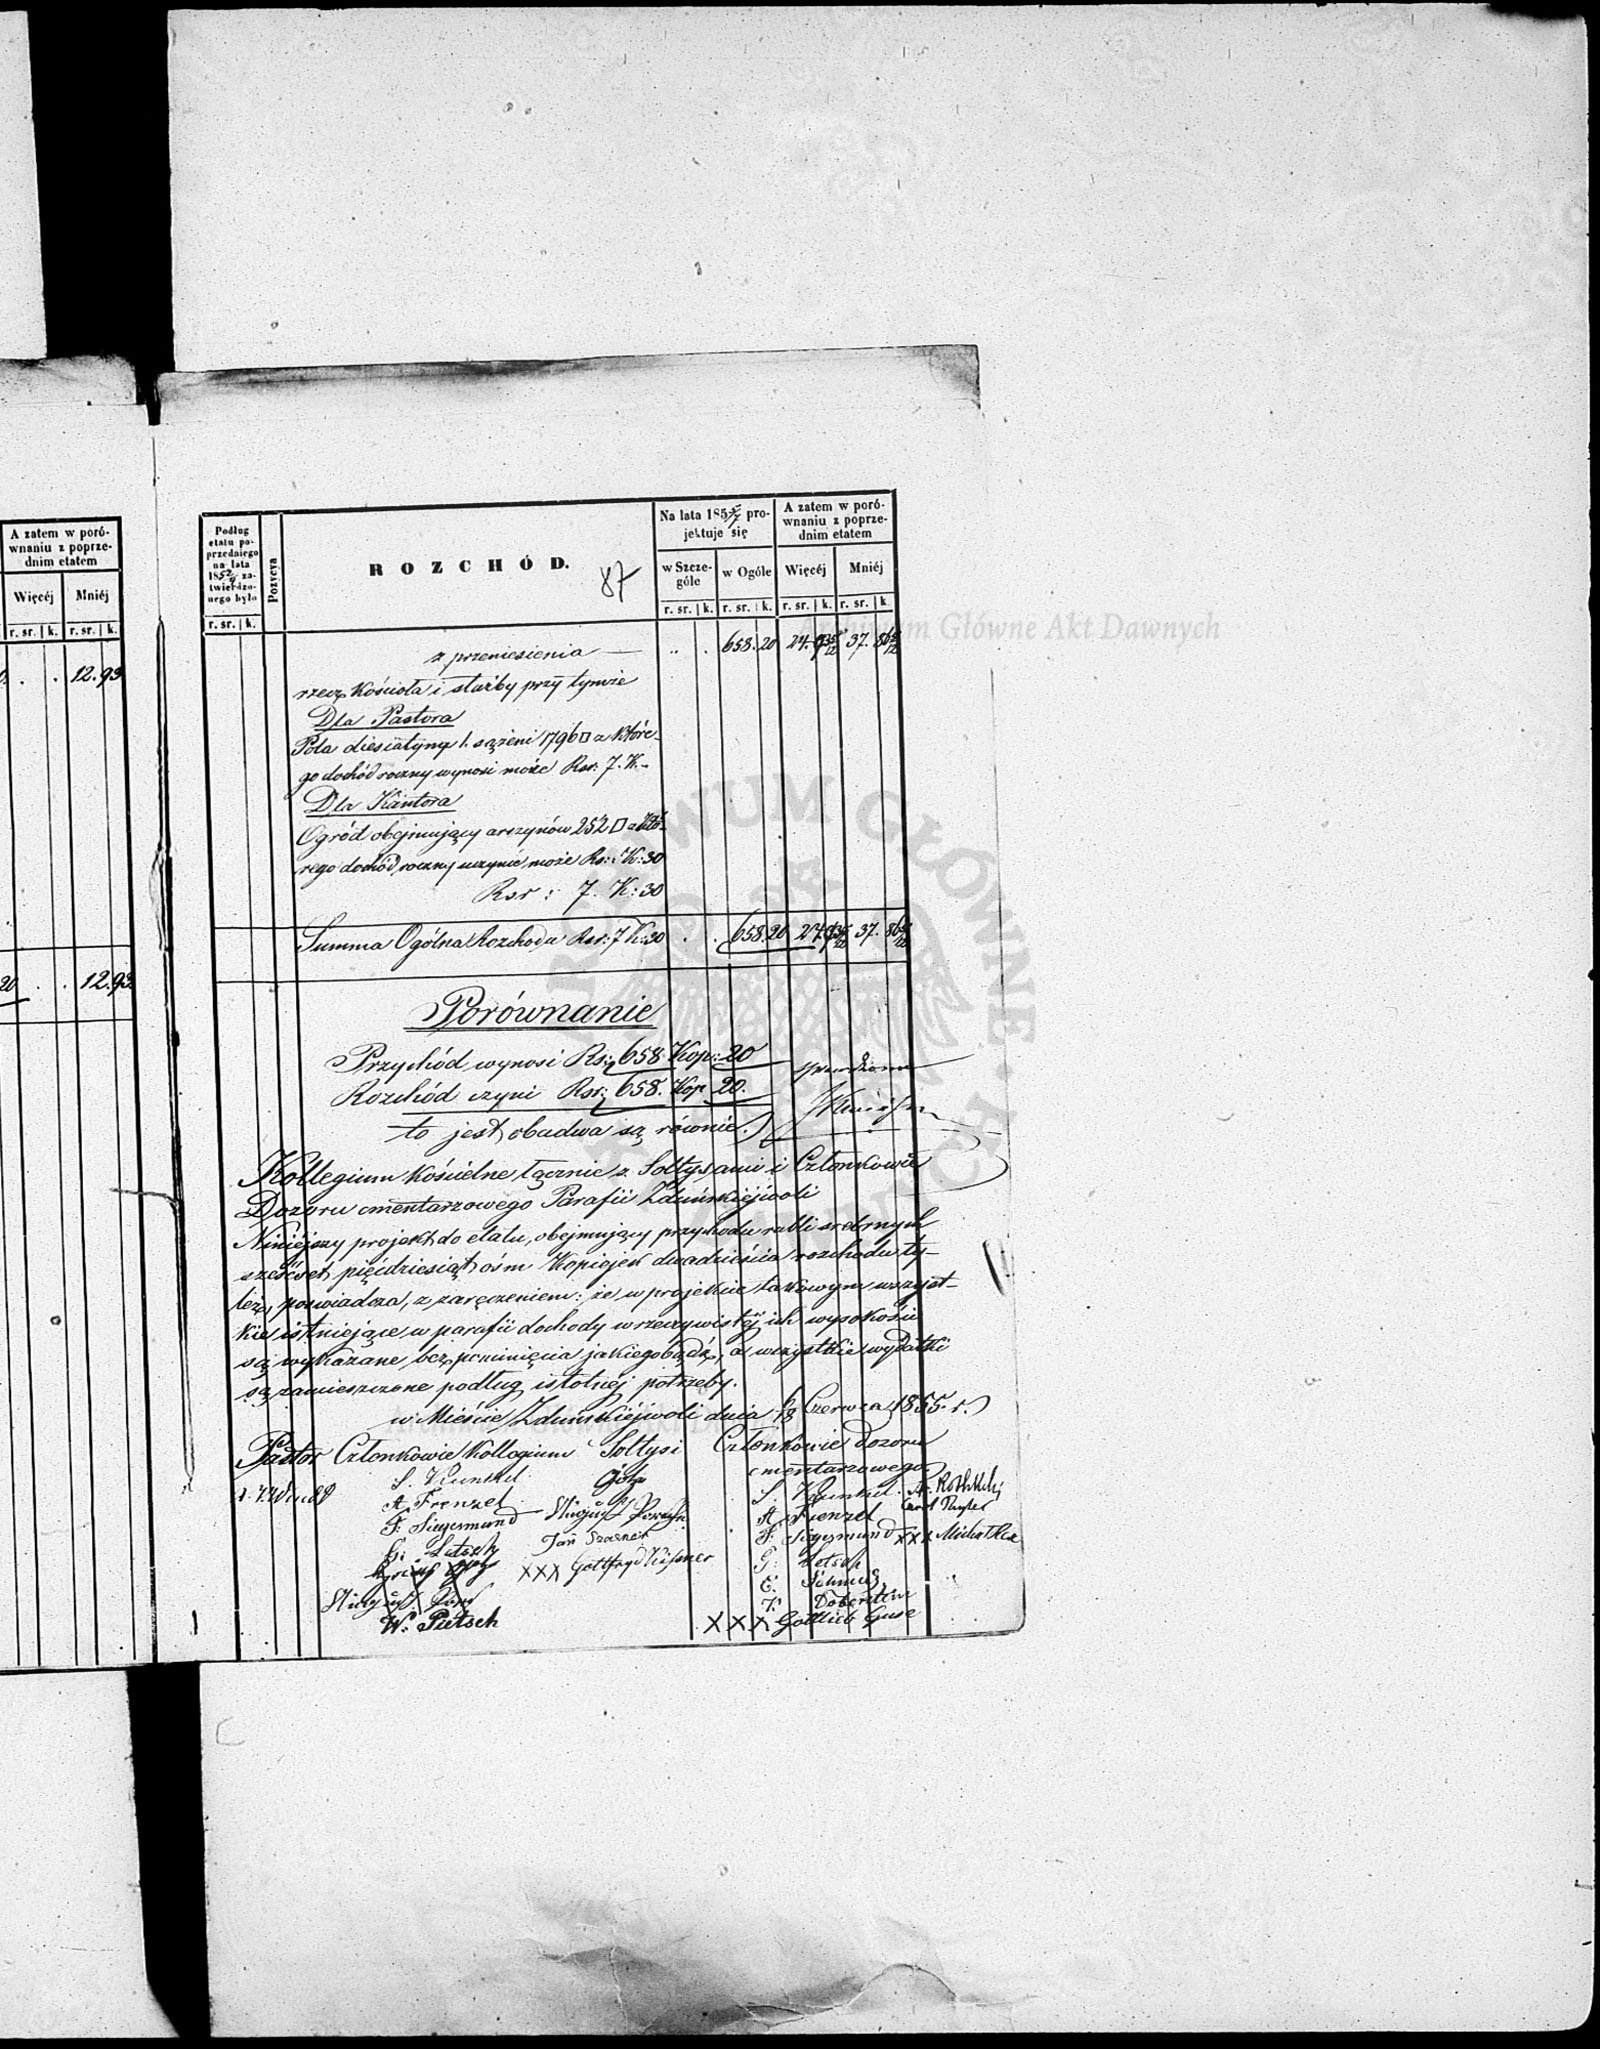 A zatem w poró-
wnaniu z poprze-
dnim etatem
Więcéj Mniéj
r. sr. k. r. sr. k.
. . 12.93
20 . . 12.93
Podług
etatu po-
przedniego
na lata
185 za-
twierdzo-
nego było
r. sr. k.
Pozycya
ROZCHÓD.
87
Na lata 185 pro-
jektuje się
w Szcze-
góle
w Ogóle
r. sr. k. r. sr. k.
A zatem w poró-
wnaniu z poprze-
dnim etatem
Więcéj Mniéj
r. sr. k. r. sr. k.
z przeniesienia — . . 658.20 24. 37.
rzecz Kościoła i służby przy tymże
Dla Pastora
Pola diesiatynę 1. sążeni 1796 □ z które-
go dochód roczny wynosi może Rsr: 7. K.-
Dla Kantora
Ogród obejmujący arszynów 252 □ z któ-
rego dochód roczny uczynić może Rs: K: 30
Rsr: 7. K: 30
Summa Ogólna Rozchodu Rsr: 7 K: 30 . . 658.20 24 37.
Porównanie
Przychód wynosi Rsr: 658 Kop: 20
Rozchód czyni Rsr: 658. Kop 20.
to jest obadwa są równie.
Kollegium Kościelne łącznie z Sołtysami i Członkowie
Dozoru cmentarzowego Parafii Zduńskiéjwoli
Niniejszy projekt do etatu, obejmujący przychodu rubli srebrnych
sześćset pięćdziesiąt ośm Kopiejek dwadzieścia rozchodu ty-
leż, poświadcza, z zaręczeniem: że w projekcie takowym wszyst-
kie istniejące w parafii dochody w rzeczywistéj ich wysokości
są wykazane, bez pominięcia jakiegobądź, a wszystkie wydatki
są zamieszczone podług istotnéj potrzeby.
w Mieście Zduńskiéjwoli dnia 6/18 Czerwca 1855. r.
Pastor Członkowie Kollegium Sołtysi Członkowie Dozoru
cmentarzowego
S. Kunkel
A. Frenzel
F. Siegesmund
G. Letsch
W. Pietsch
August
Jan
XXX Gottfryd
S. Kunkel
A. Frenzel
F. Siegesmund XXX
G. Letsch
E.
XXX Gottlieb Guse
Archiwum Główne Akt Dawnych